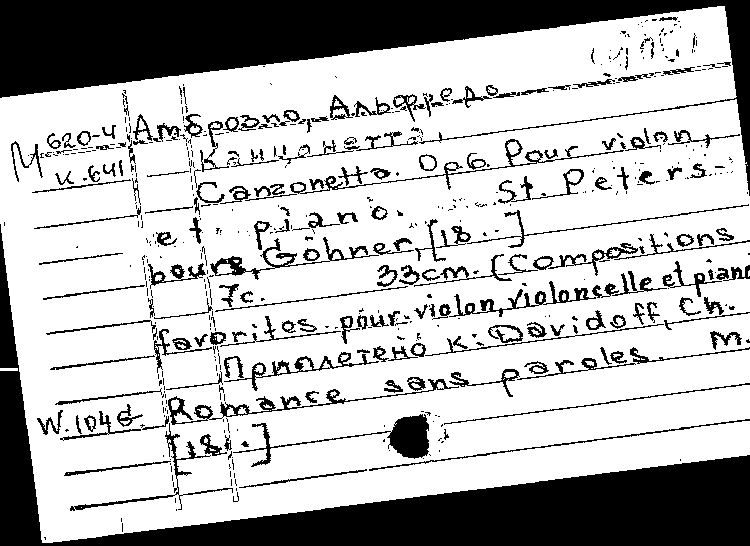 М 620-4 Амброзио, Альфредо
к.641 Канцонетта.
Canzonetta. Op6. Pour violon,
et piano. St. Peters-
bourg, Göhner, [18..]
7c. 33cm. (Compositions
favorites pour violon, violoncelle et piano
Приплетено к: Davidoff, Ch.
Romance sans paroles. M.
W.104
[18..]